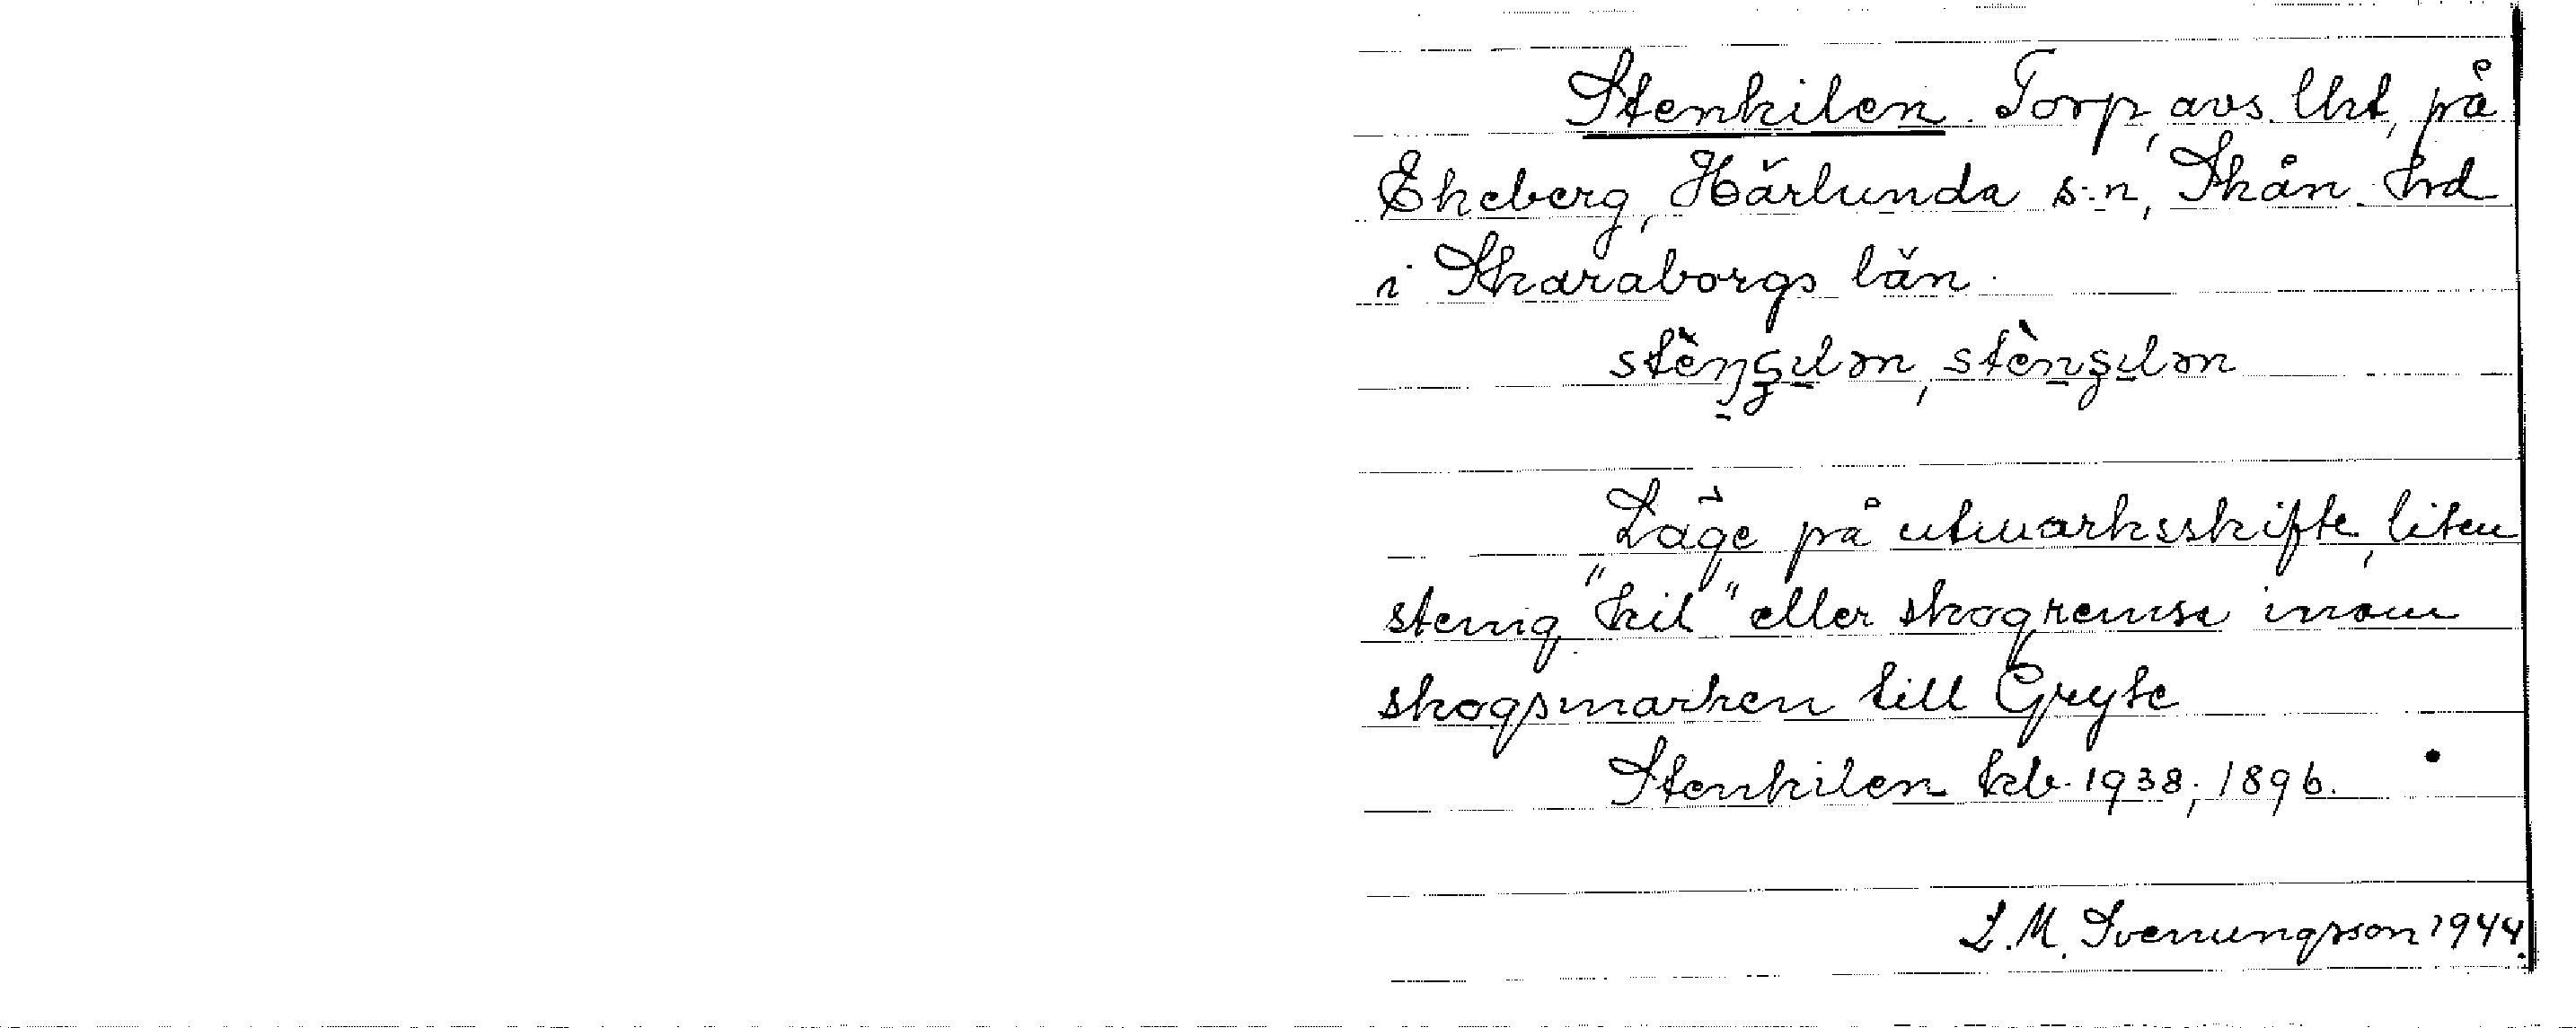 Stenkilen. Torp, avs. lht, på
Ekeberg, Härlunda s:n, Skån. hrd
i Skaraborgs län.
Läge på utmarksskifte, liten
stenig "kil" eller skogremsa inom
skogsmarken till Gryte
Stenkilen kb. 1938; 1896.
L. M. Svenungsson 1944.